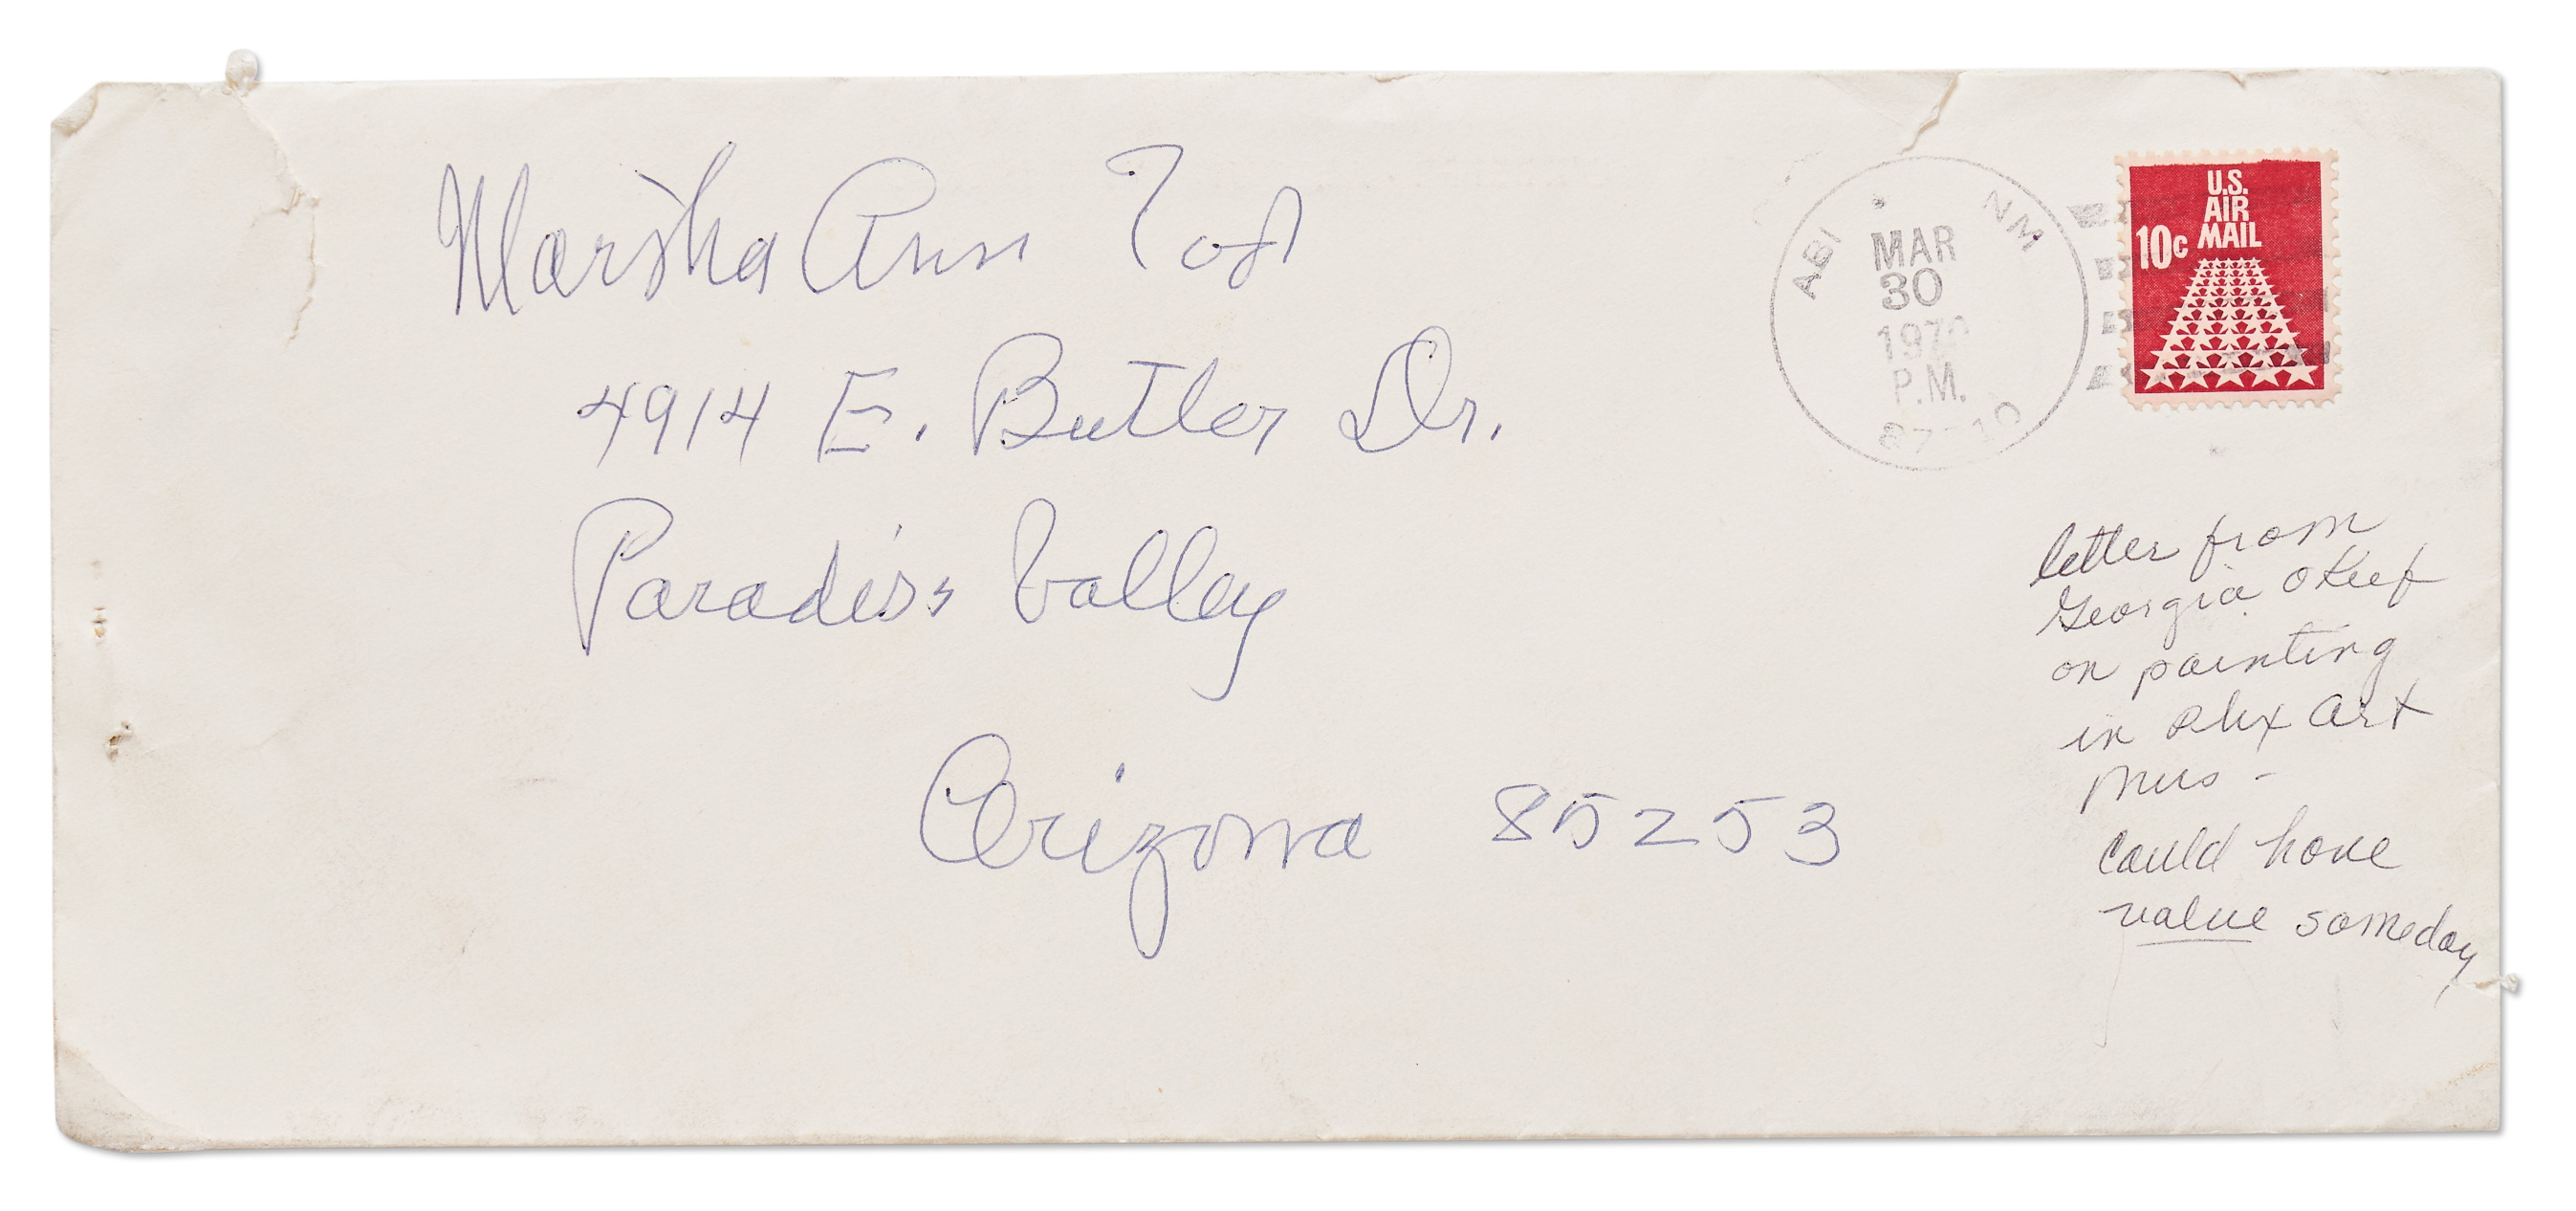 Marsha Ann
4914 E. Butler Dr.
Paradise Valley
Arizona 85253
ABI NM
MAR
30
P.M.
U.S.
AIR
MAIL
10c
letter from
Georgia oKeef
on painting
in Phx Art
Mus -
Could have
value someday